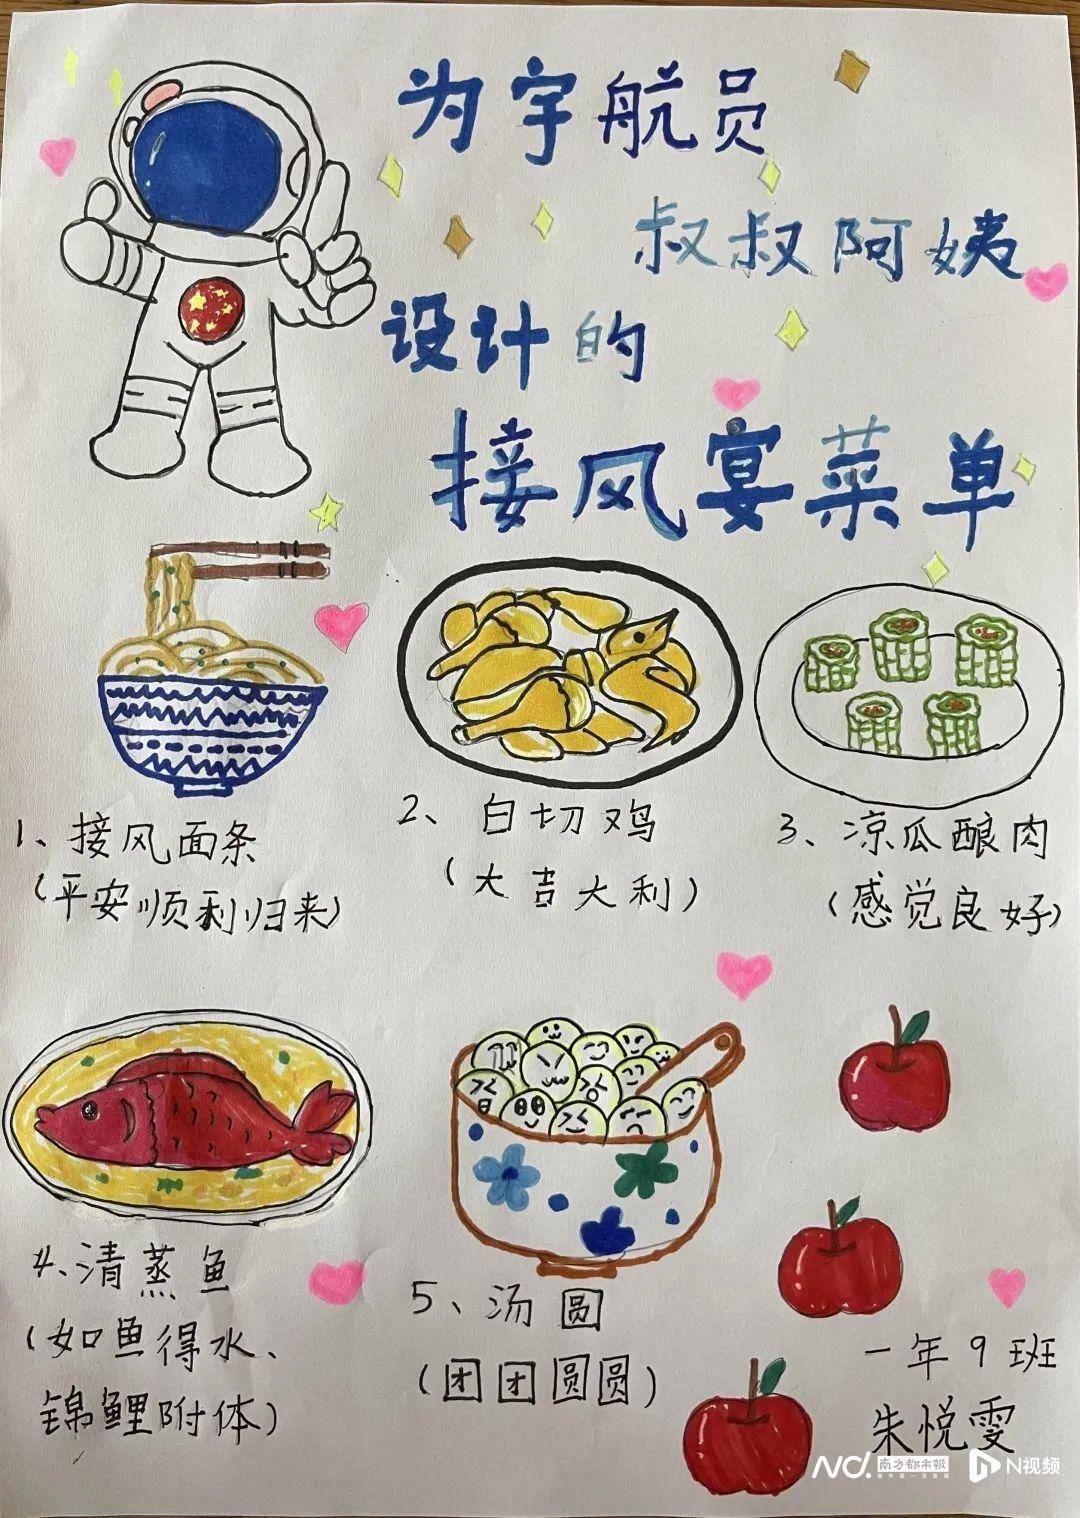 为宇航员
叔叔阿姨
设计的
接风宴菜单
1、接风面条
(平安顺利归来)
2、白切鸡
(大吉大利)
3、凉瓜酿肉
(感觉良好)
4、清蒸鱼
(如鱼得水、
锦鲤附体)
5、汤圆
(团团圆圆)
一年9班
朱悦雯
南方都市报
N视频